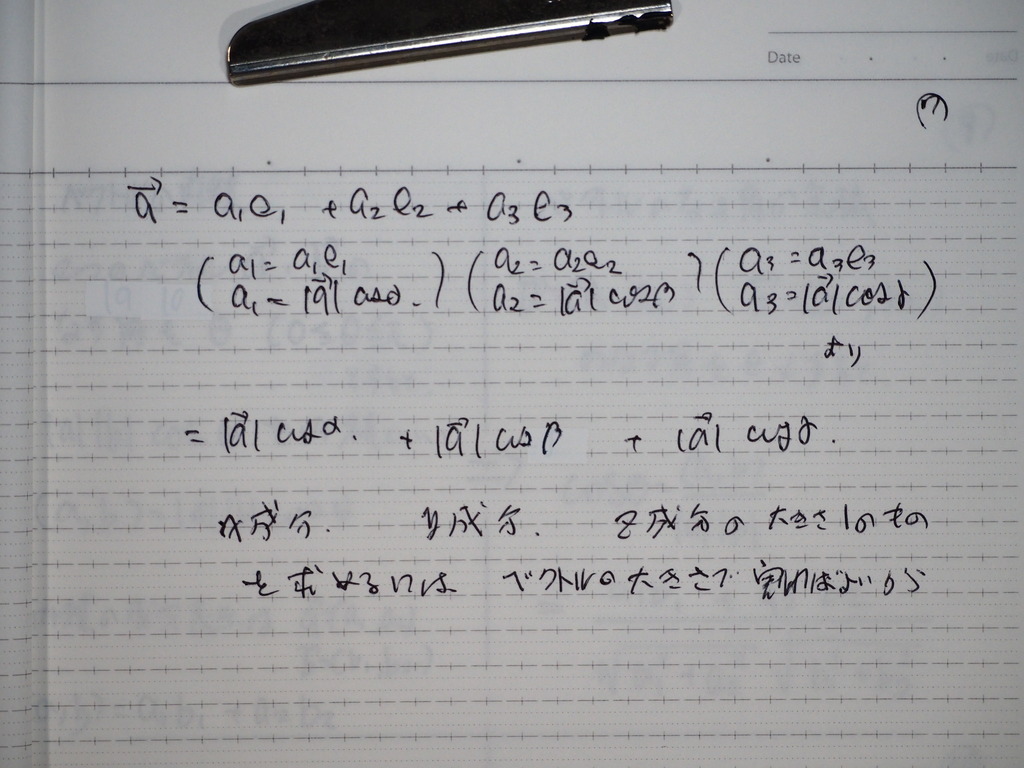 Date
(7)
a⃗ = a₁e₁ + a₂e₂ + a₃e₃
( a₁ = a₁e₁ ) ( a₂ = a₂e₂ ) ( a₃ = a₃e₃ )
( a₁ = |a⃗| cosα. ) ( a₂ = |a⃗| cosβ ) ( a₃ = |a⃗| cosγ )
より
= |a⃗| cosα. + |a⃗| cosβ + |a⃗| cosγ.
x成分. y成分. z成分の大きさ1のもの
を求めるには ベクトルの大きさで割ればよいから